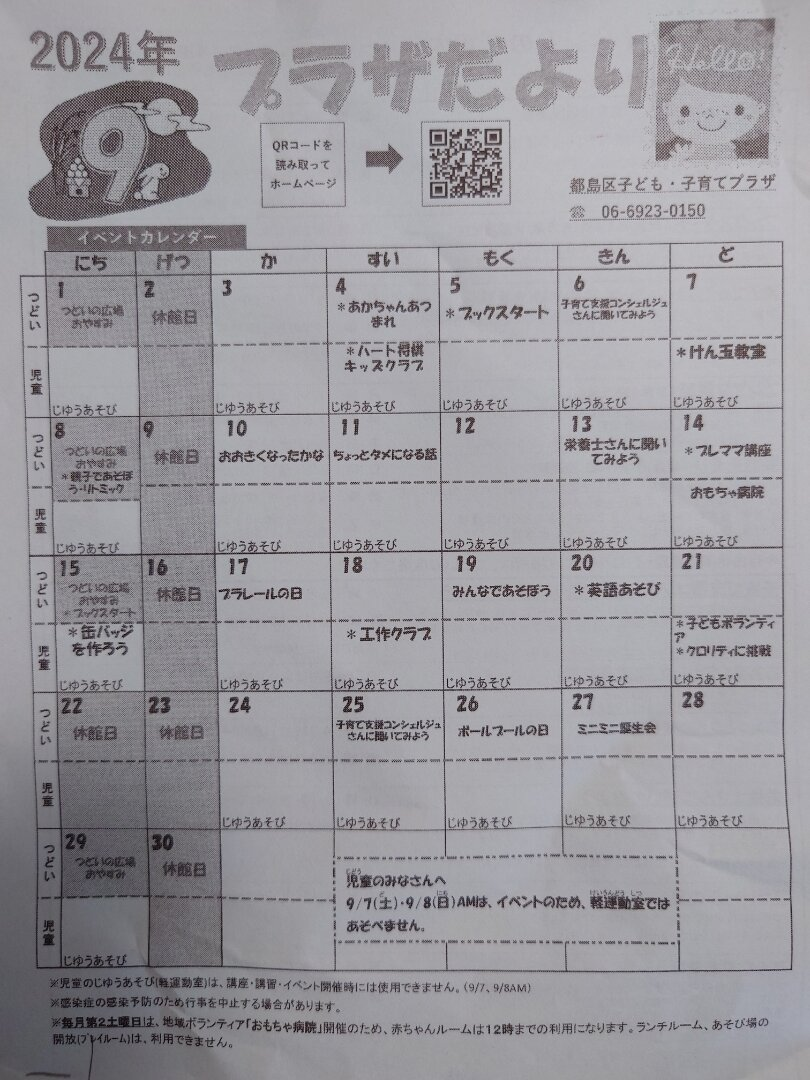 2024年
プラザだより
Hello!
9
QRコードを
読み取って
ホームページ
都島区子ども・子育てプラザ
☎ 06-6923-0150
イベントカレンダー
にち げつ か すい もく きん ど
つどい
1
つどいの広場
おやすみ
2
休館日
3
4
＊あかちゃんあつ
まれ
5
＊ブックスタート
6
子育て支援コンシェルジュ
さんに聞いてみよう
7
児童
じゆうあそび
じゆうあそび
＊ハート将棋
キッズクラブ
じゆうあそび
じゆうあそび
じゆうあそび
＊けん玉教室
じゆうあそび
つどい
8
つどいの広場
おやすみ
＊親子であそぼ
う・リトミック
9
休館日
10
おおきくなったかな
11
ちょっとタメになる話
12
13
栄養士さんに聞い
てみよう
14
＊プレママ講座
児童
じゆうあそび
じゆうあそび
じゆうあそび
じゆうあそび
じゆうあそび
おもちゃ病院
じゆうあそび
つどい
15
つどいの広場
おやすみ
＊ブックスタート
16
休館日
17
プラレールの日
18
19
みんなであそぼう
20
＊英語あそび
21
児童
＊缶バッジ
を作ろう
じゆうあそび
じゆうあそび
＊工作クラブ
じゆうあそび
じゆうあそび
じゆうあそび
＊子どもボランティ
ア
＊クロリティに挑戦
じゆうあそび
つどい
22
休館日
23
休館日
24
25
子育て支援コンシェルジュ
さんに聞いてみよう
26
ボールプールの日
27
ミニミニ誕生会
28
児童
じゆうあそび
じゆうあそび
じゆうあそび
じゆうあそび
じゆうあそび
つどい
29
つどいの広場
おやすみ
30
休館日
児童
じゆうあそび
児童のみなさんへ
9/7(土)・9/8(日)AMは、イベントのため、軽運動室では
あそべません。
※児童のじゆうあそび(軽運動室)は、講座・講習・イベント開催時には使用できません。（9/7、9/8AM）
※感染症の感染予防のため行事を中止する場合があります。
※毎月第2土曜日は、地域ボランティア「おもちゃ病院」開催のため、赤ちゃんルームは12時までの利用になります。ランチルーム、あそび場の
開放(プレイルーム)は、利用できません。